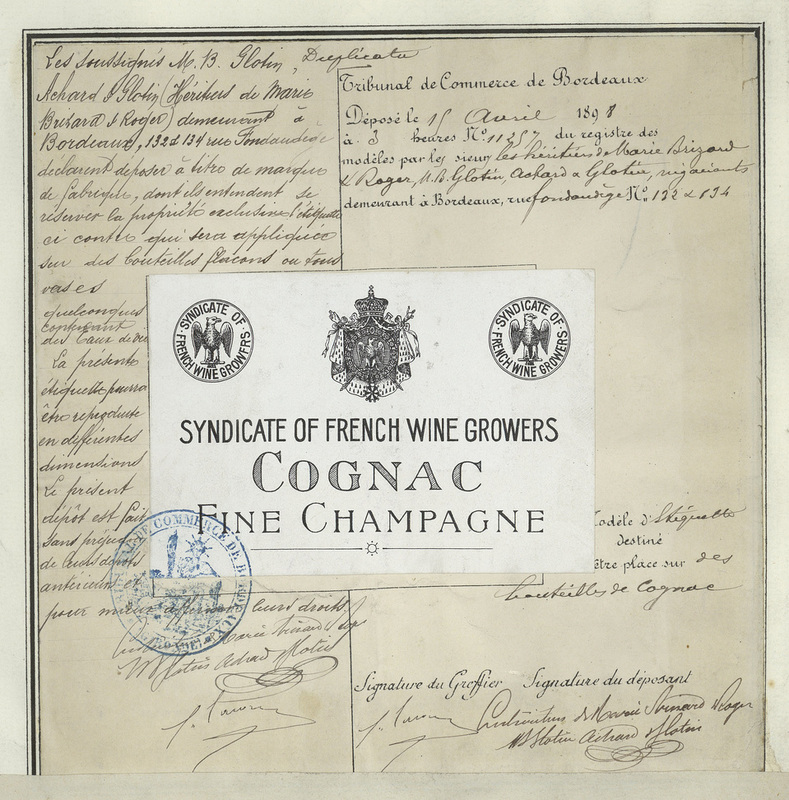 Les soussignés M. B. Glotin, Duplicata
Achard & Glotin (Héritiers de Marie
Brizard & Roger) demeurant à
Bordeaux, 132 & 134 rue Fondaudège
déclarent déposer à titre de marque
de fabrique, dont ils entendent se
réserver la propriété exclusive l'étiquette
ci contre qui sera appliquée
sur des bouteilles flacons ou tous
vases
quelconques
contenant
des Eaux de vie
La présente
étiquette pourra
être reproduite
en différentes
dimensions
Le présent
dépôt est fait
sans préjud
de leurs dépôts
antérieurs et
pour mieux affirmer leurs droits
Marie Brizard & Roger
MB Glotin Achard & Glotin
Tribunal de Commerce de Bordeaux
Déposé le 15 Avril 1898
à 3 heures N° 11257 du registre des
modèles par les sieurs les héritiers de Marie Brizard
& Roger, M. B. Glotin, Achard & Glotin, négociants
demeurant à Bordeaux, rue fondaudège N° 132 & 134
SYNDICATE OF FRENCH WINE GROWERS
SYNDICATE OF FRENCH WINE GROWERS
SYNDICATE OF FRENCH WINE GROWERS
COGNAC
FINE CHAMPAGNE
odèle d'Etiquette
destiné
être place sur des
bouteilles de Cognac
DE COMMERCE DE
Signature du Greffier Signature du déposant
Les héritiers de Marie Brizard & Roger
MB Glotin Achard & Glotin